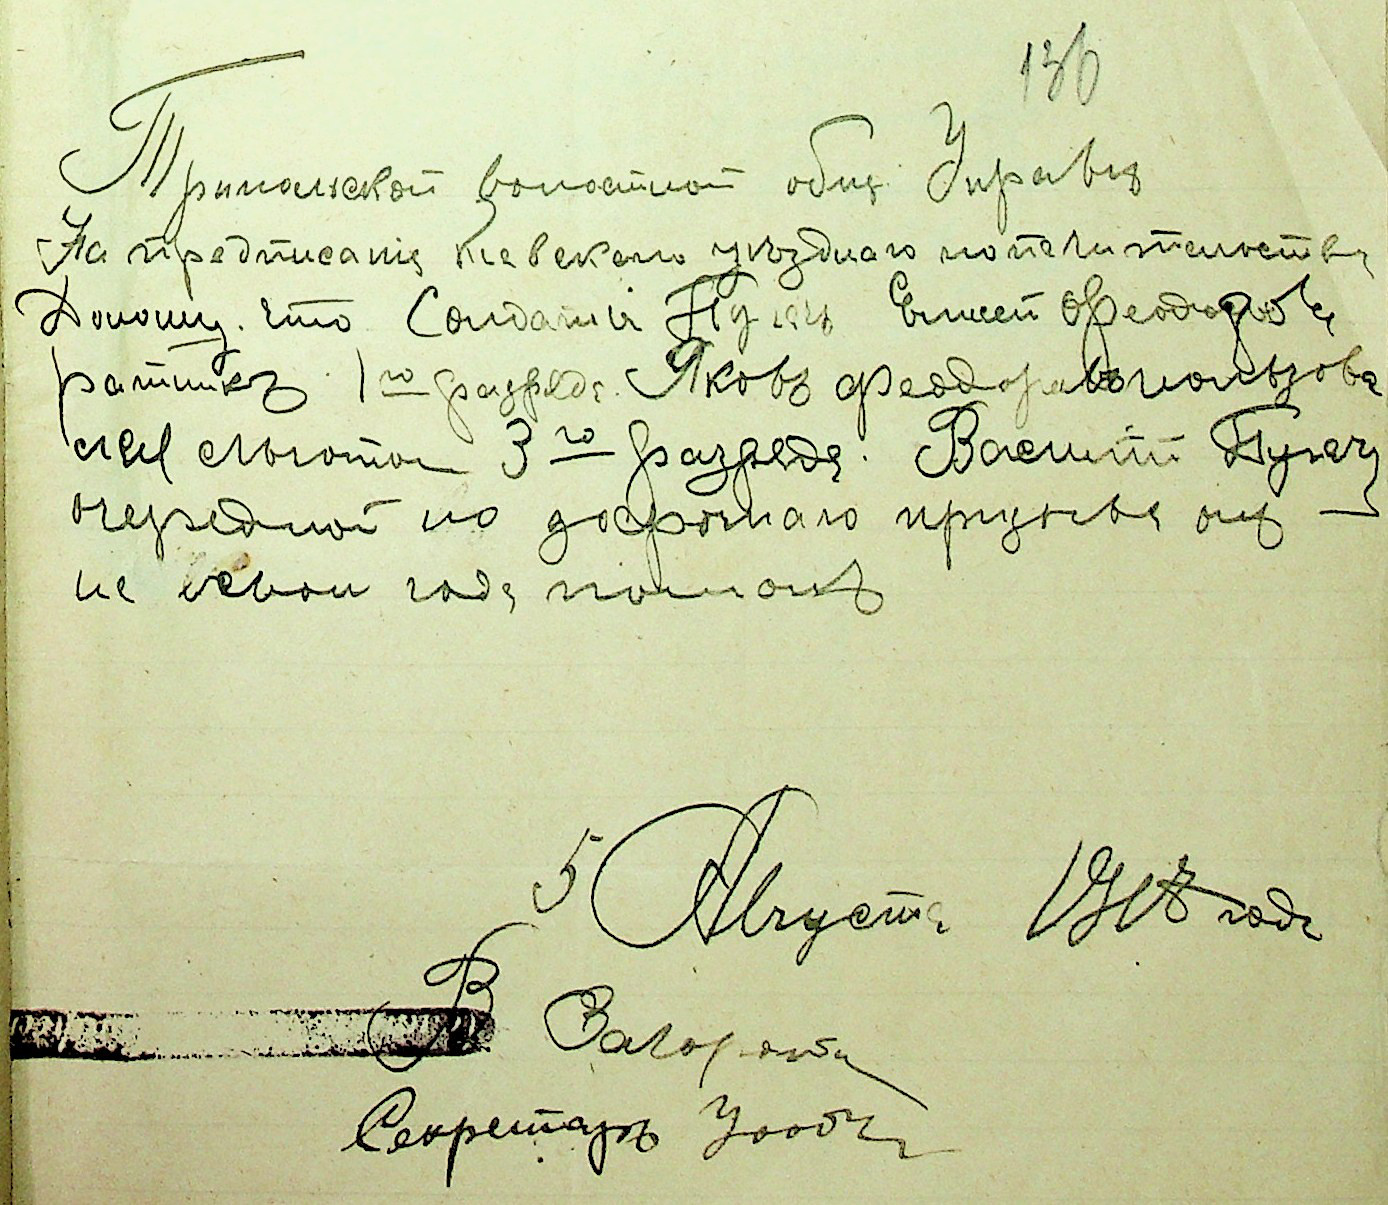 136
Трипольской волостной общ. Управы
На предписаніе Киевского уѣзднаго попечительства
Доношу. что Солдаты Пугач Елисей Феодоров
ратник 1го разряда. Яковъ Феодоров пользова
лся льготою 3го разряда. Василій Пугач
очередной по досрочнаго призыва они
не
5 Августа 1917 года
Секретарь